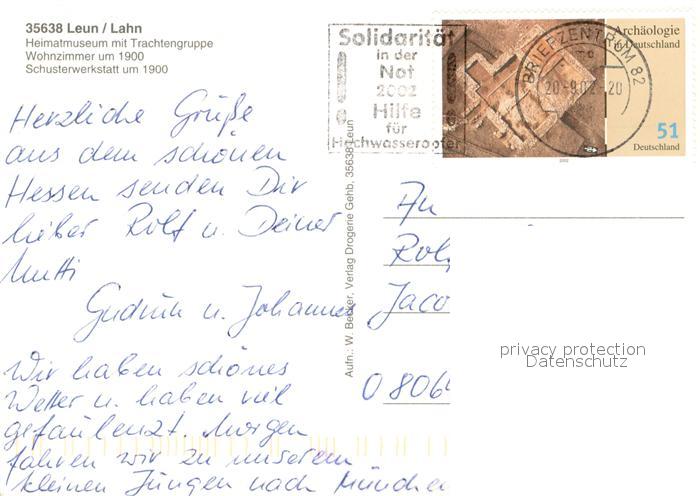 35638 Leun / Lahn
Heimatmuseum mit Trachtengruppe
Wohnzimmer um 1900
Schusterwerkstatt um 1900
Solidarität
in der
Not
2002
Hilfe
für
Hochwasseropfer
BRIEFZENTRUM 82
20-9.02-20
Archäologie
in Deutschland
51
Deutschland
2002
Herzliche Grüße
aus dem schönen
Hessen senden Dir
lieber Rolf u. Deiner
Mutti
Gudrun u. Johannes
Wir haben schönes
Wetter u. haben viel
gefaulenzt. Morgen
fahren wir zu unserem
kleinen Jungen nach Münche
Aufn.: W. Becker, Verlag Drogerie Gehb, 35638 Leun
An
Rol
Jaco
0806
privacy protection
Datenschutz